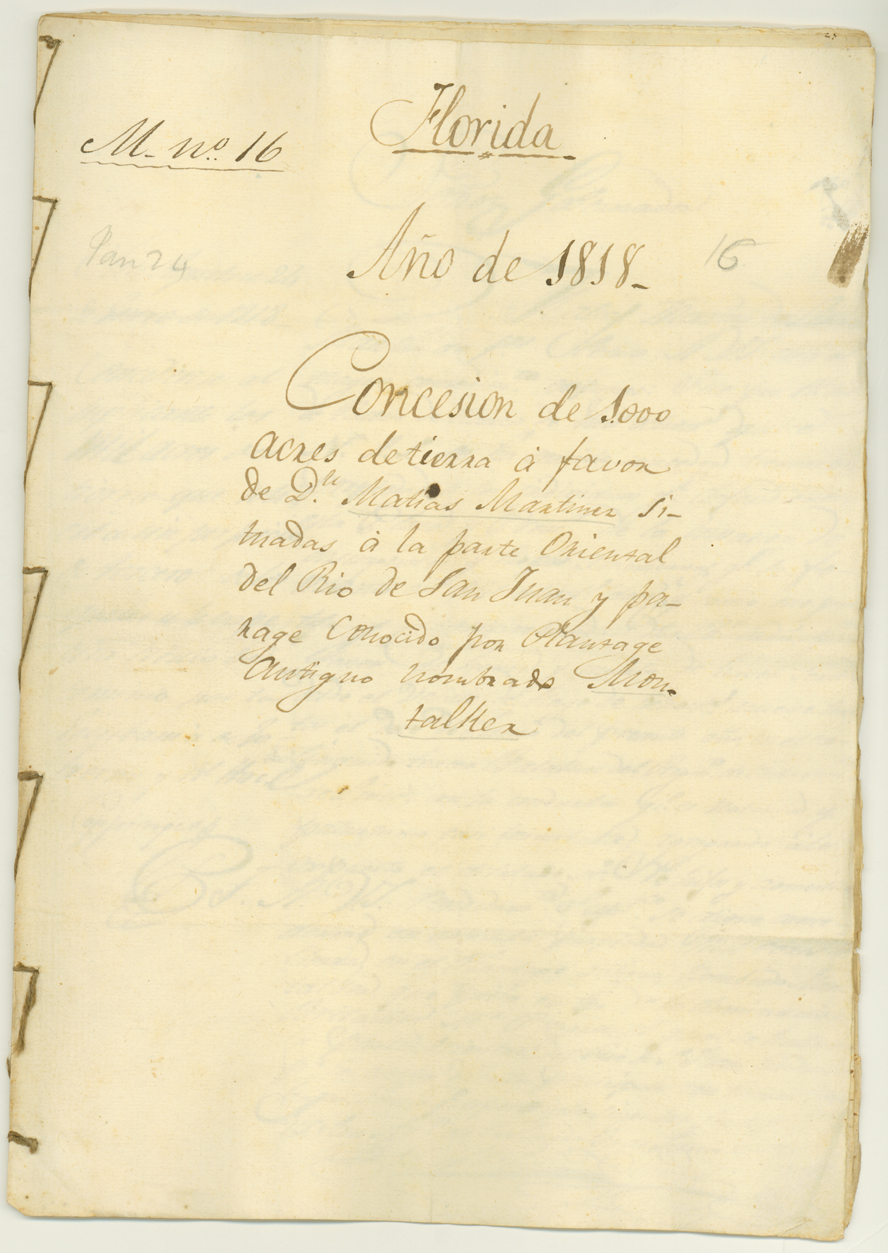 Florida
M. nº. 16
Pan 24
Año de 1818_
16
Concesion de 1.000
acres de tierra à favor
de D.ⁿ Matias Martinez si-
tuadas à la parte Oriental
del Rio de San Juan y pa-
rage Conocido por Plantage
Antiguo nombrado Mon-
talker